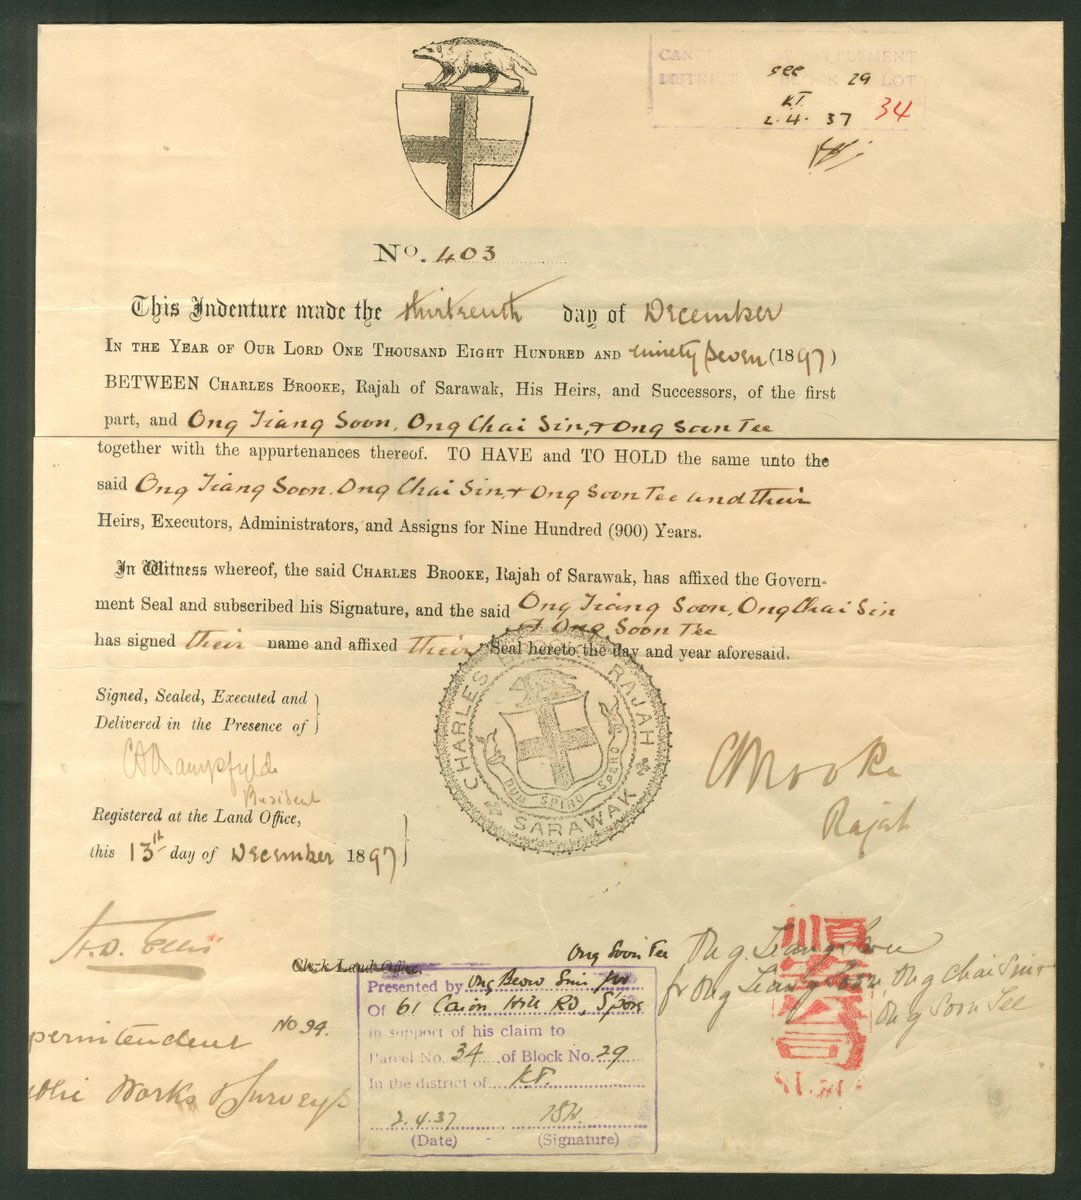 CANCELLED BY SETTLEMENT
DISTRICT see BLOCK 29 LOT 34
KT.
2.4.37
No. 403
This Indenture made the thirteenth day of December
In the Year of Our Lord One Thousand Eight Hundred and ninety seven (1897)
BETWEEN Charles Brooke, Rajah of Sarawak, His Heirs, and Successors, of the first
part, and Ong Tiang Soon, Ong Chai Sin, & Ong Soon Tee
together with the appurtenances thereof. TO HAVE and TO HOLD the same unto the
said Ong Tiang Soon, Ong Chai Sin & Ong Soon Tee and their
Heirs, Executors, Administrators, and Assigns for Nine Hundred (900) Years.
In Witness whereof, the said Charles Brooke, Rajah of Sarawak, has affixed the Govern-
ment Seal and subscribed his Signature, and the said Ong Tiang Soon, Ong Chai Sin
& Ong Soon Tee
has signed their name and affixed their Seal hereto the day and year aforesaid.
CHARLES BROOKE RAJAH
DUM SPIRO SPERO
SARAWAK
Signed, Sealed, Executed and
Delivered in the Presence of
C A Bampfylde
Resident
CBrooke
Rajah
Registered at the Land Office,
this 13th day of December 1897
H.D. Ellis
Clerk Land Office.
perintendent
ublic Works & Surveys
No 94.
Ong Soon Tee
Presented by Ong Beow Sim for
Of 61 Cairn Hill RD, Spore
in support of his claim to
Parcel No. 34 of Block No. 29
In the district of KT.
2.4.37
(Date) (Signature)
Ong Tiang Soon
fr Ong Tiang Soon Ong Chai Sin &
Ong Soon Tee